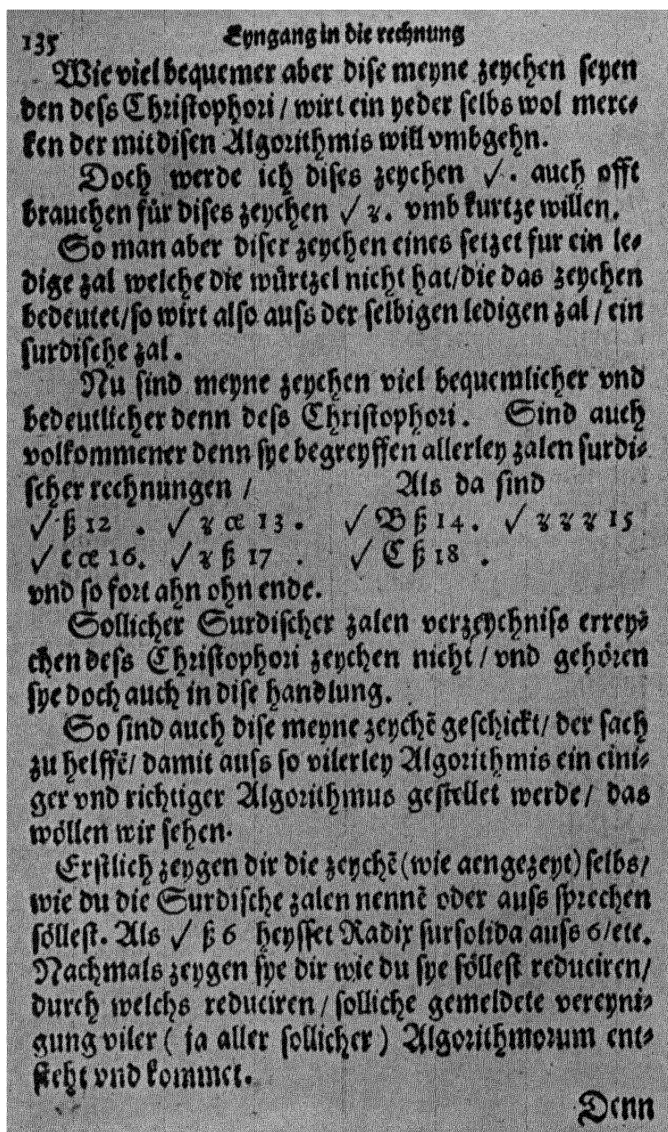 135 Eyngang in die rechnung
Wie viel bequemer aber dise meyne zeychen seyen
den dess Christophori / wirt ein yeder selbs wol merc⸗
ken der mit disen Algorithmis will vmbgehn.
Doch werde ich dises zeychen √. auch offt
brauchen für dises zeychen √ ʒ. vmb kurtze willen.
So man aber diser zeychen eines setzet fur ein le⸗
dige zal welche die würtzel nicht hat/die das zeychen
bedeutet/so wirt also auss der selbigen ledigen zal / ein
surdische zal.
Nu sind meyne zeychen viel bequemlicher vnd
bedeutlicher denn dess Christophori. Sind auch
volkommener denn sye begreyffen allerley zalen surdi⸗
scher rechnungen / Als da sind
√ ß 12 . √ ʒ cc 13 . √ B ß 14. √ ʒ ʒ ʒ 15
√ c cc 16. √ ʒ ß 17 . √ C ß 18 .
vnd so fort ahn ohn ende.
Sollicher Surdischer zalen verzeychniss errey⸗
chen dess Christophori zeychen nicht / vnd gehören
sye doch auch in dise handlung.
So sind auch dise meyne zeychē geschickt/ der sach
zu helffē/ damit auss so vilerley Algorithmis ein eini⸗
ger vnd richtiger Algorithmus gestellet werde/ das
wöllen wir sehen.
Erstlich zeygen dir die zeychē (wie aengezeyt) selbs/
wie du die Surdische zalen nennē oder auss sprechen
söllest. Als √ ß 6 heysset Radix sursolida auss 6/etc.
Nachmals zeygen sye dir wie du sye söllest reduciren/
durch welchs reduciren / solliche gemeldete vereyni⸗
gung viler ( ja aller sollicher ) Algorithmorum ent⸗
steht vnd kommet.
Denn